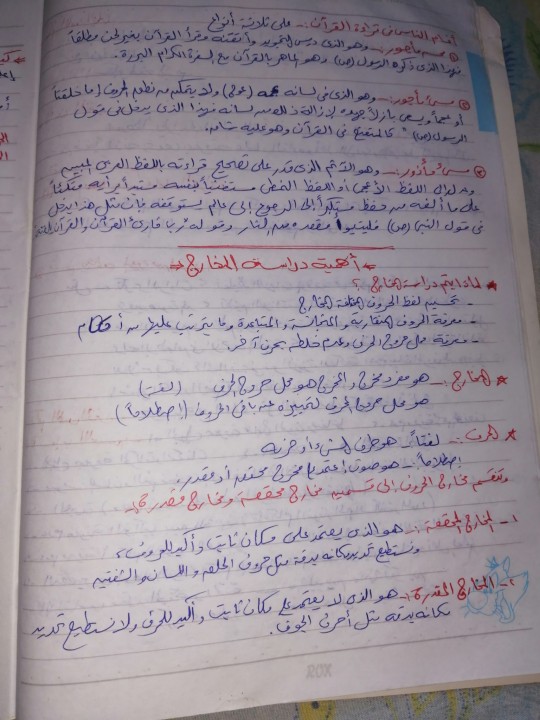 أقسام الناس في قراءة القرآن :- على ثلاثة أنواع
① محسن مأجور :- وهو الذي درس التجويد وأتقنه وقرأ القرآن بغير لحن مطلقاً
فهذا الذي ذكره الرسول (ص) وهو الماهر بالقرآن مع السفرة الكرام البررة.
② مسئ مأجور :- وهو الذي في لسانه عوج ولا يتمكن من نطق الحروف إما خلقتاً
أو عجمة ويسعى بازلاً جهده لإزالة ذلك من لسانه فهذا الذي يدخل في قول
الرسول (ص) " كالمتتعتع في القرآن وهو عليه شاق.
③ مسئ مأثور :- وهو الآثم الذي قدر على تصحيح قراءته باللفظ العربي الصحيح
وعدل إلى اللفظ الأعجمي أو اللفظ مستغنياً بنفسه مستبد برأيه متكلاً
على ما ألفه من حفظ مستكبراً الرجوع إلى عالم يستوقفه فإن مثل هذا يدخل
في قول النبي (ص) فليتبوأ مقعده من النار وقوله رب قارئ القرآن والقرآن يلعنه
أهمية دراسة المخارج
* لماذا يتم دراسة المخارج ؟
- تحسين لفظ الحروف المخارج
- معرفة الحروف المتقاربة والمتجانسة والمتباعدة وما يترتب عليها من أحكام
- معرفة محل خروج الحرف وعدم خلطه بحرف آخر.
* المخارج :- هو مفرد مخرج والمخرج هو محل خروج الحرف (لغتاً)
هو محل خروج الحرف لتمييزه عن باقي الحروف (اصطلاحاً)
* الحرف :- لغتاً :- هو طرف الشئ أو حزبه
إصطلاحاً :- هو صوت اعتمد على مخرج محقق أو مقدر.
وتنقسم مخارج الحروف إلى قسمين مخارج محققة ومخارج مقدرة
١- المخارج المحققة :- هو الذي يعتمد على مكان ثابت وأكيد للحروف
ونستطيع تحديد مكانه بدقة مثل حروف الحلق واللسان والشفتين
٢- المخارج المقدرة :- هو الذي لا يعتمد على مكان ثابت وأكيد للحرف ولا نستطيع تحديد
مكانه بدقة مثل أحرف الجوف.